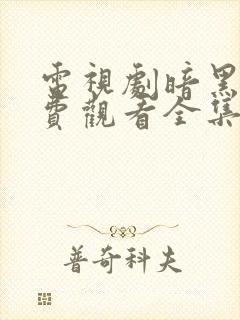 電視劇暗黑
費觀看全集
普奇科夫